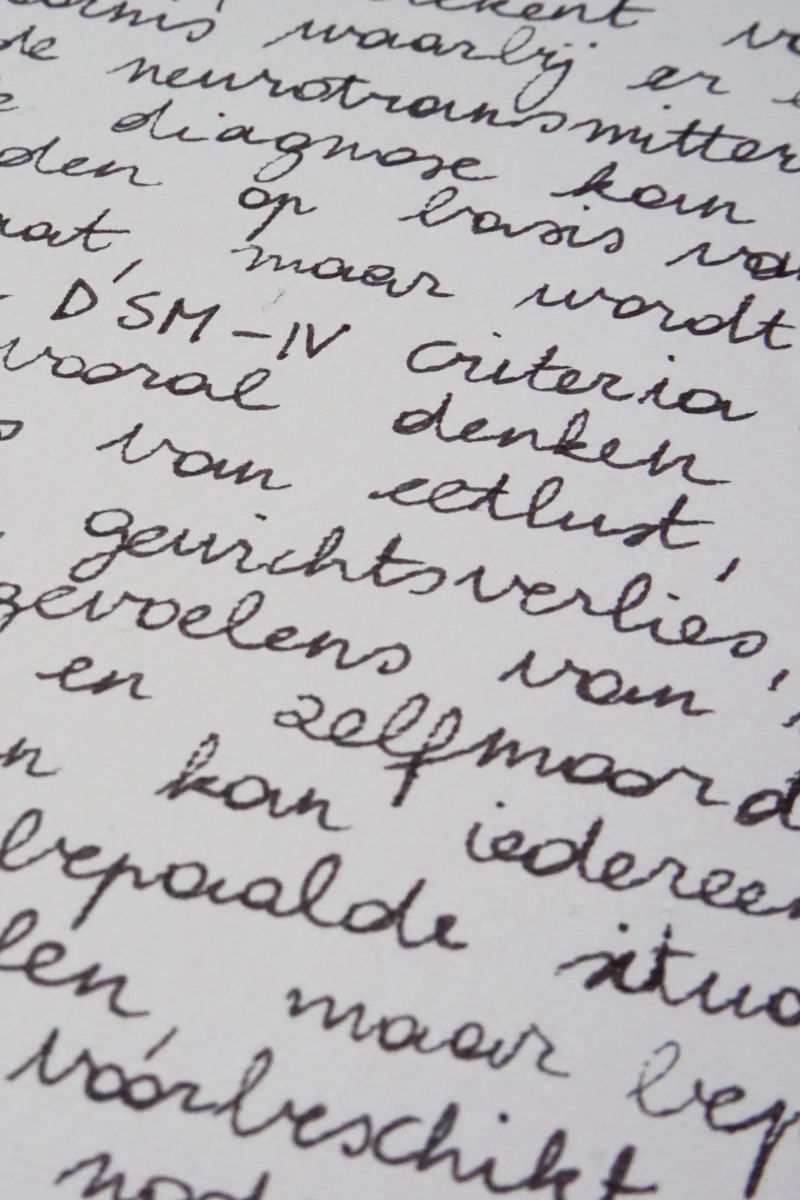 waarbij er
de neurotransmitter
diagnose kan
den op basis va
aat, maar wordt
DSM-IV criteria
vooral denken
van eetlust,
gewichtsverlies,
gevoelens van
en zelfmoord
n kan iedereen
bepaalde situa
len, maar bep
voorbeschikt